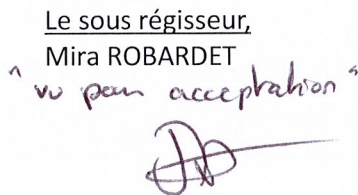 Le sous régisseur,
Mira ROBARDET
" vu pour acceptation "